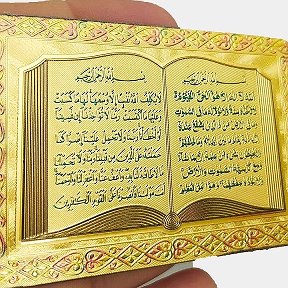 بسم الله الرحمن الرحيم
الله لا إله إلا هو الحي القيوم
لا تأخذه سنة ولا نوم له ما في السموات
وما في الأرض من ذا الذي يشفع
عنده إلا بإذنه يعلم ما بين أيديهم وما
خلفهم ولا يحيطون بشيء من علمه
إلا بما شاء وسع كرسيه السموات والأرض
ولا يؤده حفظهما وهو العلي العظيم
بسم الله الرحمن الرحيم
لا يكلف الله نفسا إلا وسعها لها ما كسبت
وعليها ما اكتسبت ربنا لا تؤاخذنا إن نسينا
أو أخطأنا ربنا ولا تحمل علينا إصرا كما
حملته على الذين من قبلنا ربنا ولا تحملنا
ما لا طاقة لنا به واعف عنا واغفر لنا وارحمنا
أنت مولانا فانصرنا على القوم الكفرين